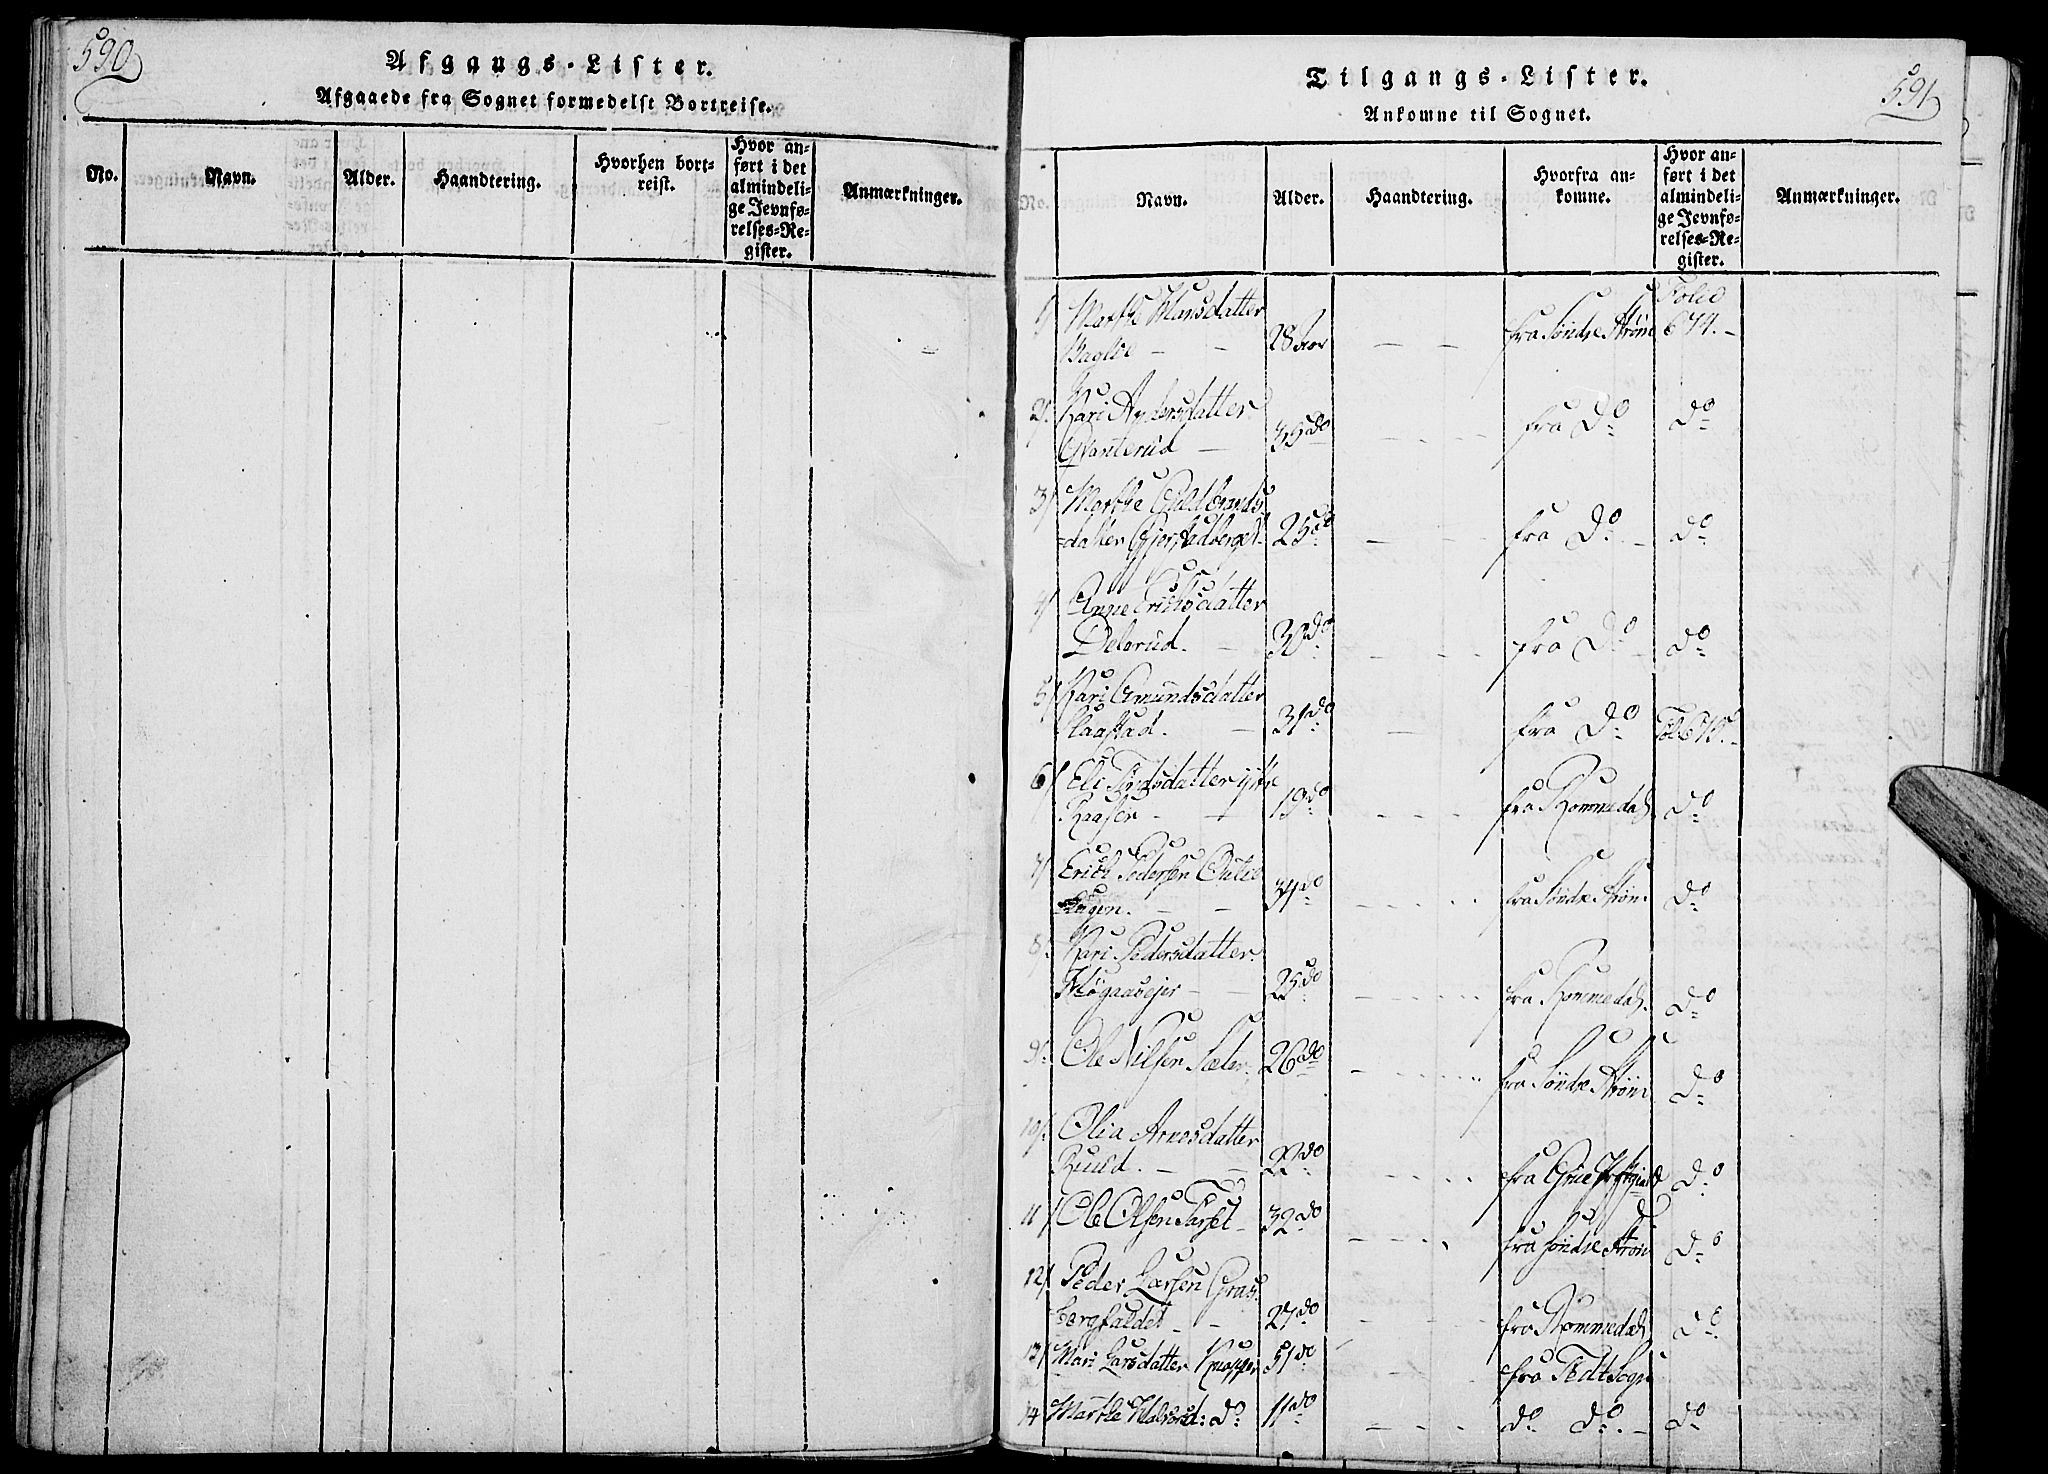 590
Afgangs-Lister.
Afgaaede fra Sognet formedelst Bortreise.
No.
Navn.
Alder.
Haandtering.
Hvorhen bort-
reist.
Hvor an-
ført i det
almindeli-
ge Jevnfø-
relses-Re-
gister.
Anmærkninger.
591
Tilgangs-Lister.
Ankomne til Sognet.
No.
Navn.
Alder.
Haandtering.
Hvorfra an-
komne.
Hvor an-
ført i det
almindeli-
ge Jevnfø-
relses-Re-
gister.
Anmærkninger.
1/ Marthe Hansdatter
28 Aar fra Søndre Strøm Folio 674.
2/ Kari Andersdatter
Qvanterud 35 do fra Do do
3/ Marthe Guldbrands-
datter Gjerstadberget 25 do fra Do do
4/ Anne Erichsdatter
Delerud. 30 do fra Do do
5/ Kari Amundsdatter
Haastad. 31 do fra Do Fol 675.
6/ Eli
Kaasen 19 do fra Rommedal do
7/ Erich Pedersen
Hagen. 34 do fra Søndre Strøm do
8/ Kari Pedersdatter
25 do fra Rommedal do
9/ Ole Nilsen Sæter 26 do fra Søndre Strøm do
10/ Olia Arnesdatter
Ruud. 22 do fra Grue Præstegield do
11/ Ole Olsen Tørset 32 do fra Søndre Strøm do
12/ Peder Larsen Gras-
bergfaldet 27 do fra Rommedal do
13/ Mari Larsdatter Knapper 51 do fra Sogn
14 Marthe Halvorsd: do 11 do do do. do